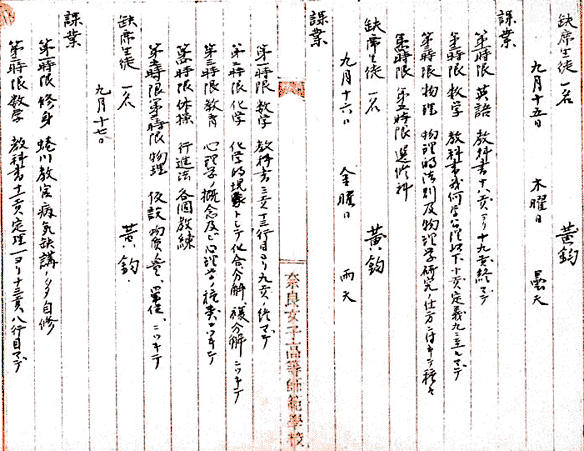 缺席生徒 一名 黃鈞
九月十五日 木曜日 曇天
課業
第一時限 英語 教科書十八頁ヨリ十九頁終マデ
第二時限 数学 教科書幾何学公理以下十頁定義九ニ至ルマデ
第三時限 物理 物理的法則及物理学研究ノ仕方ニ
第四時限 第五時限 選修科
缺席生徒 一名 黃鈞
九月十六日 金曜日 雨天
課業
奈良女子高等師範學校
第一時限 数学 教科書三頁十三行目ヨリ九頁ノ終マデ
第二時限 化学 化学的現象トシテ化合分解、複分解ニツキテ
第三時限 教育 心理学ノ概念及ビ心理学ノ種類ニツキテ
第四時限 体操 行進法 各個教練
第五時限 物理 仮説 物質、量、單位、ニツキテ
缺席生徒 一名 黃鈞
九月十七日
課業
第一時限 修身 蜷川教官病気缺講ノタメ自修
第二時限 数学 教科書十一頁定理一ヨリ十三頁八行目マデ